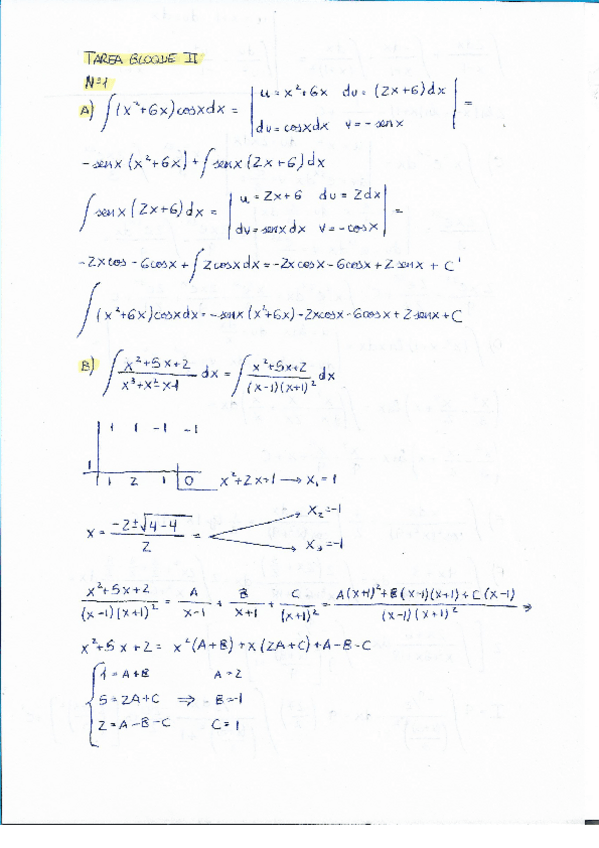 TAREA BLOQUE II
Nº1
A) ∫(x²+6x)cosxdx = | u = x²+6x du = (2x+6)dx | =
dv = cosxdx v = -senx
-senx(x²+6x)+∫senx(2x+6)dx
∫senx(2x+6)dx = | u = 2x+6 du = 2dx | =
dv = senxdx v = -cosx
-2xcos -6cosx+∫2cosxdx = -2xcosx-6cosx+2senx+C'
∫(x²+6x)cosxdx = -senx(x²+6x)-2xcosx-6cosx+2senx+C
B) ∫ x²+5x+2 / x³+x²-x-1 dx = ∫ x²+5x+2 / (x-1)(x+1)² dx
1 1 -1 -1
1
1 2 1 0 x²+2x+1 → x₁=1
x = -2±√4-4 / 2 = x₂=-1
x₃=-1
x²+5x+2 / (x-1)(x+1)² = A / x-1 + B / x+1 + C / (x+1)² = A(x+1)²+B(x-1)(x+1)+C(x-1) / (x-1)(x+1)² ⇒
x²+5x+2 = x²(A+B)+x(2A+C)+A-B-C
1=A+B A=2
5=2A+C ⇒ B=-1
2=A-B-C C=1